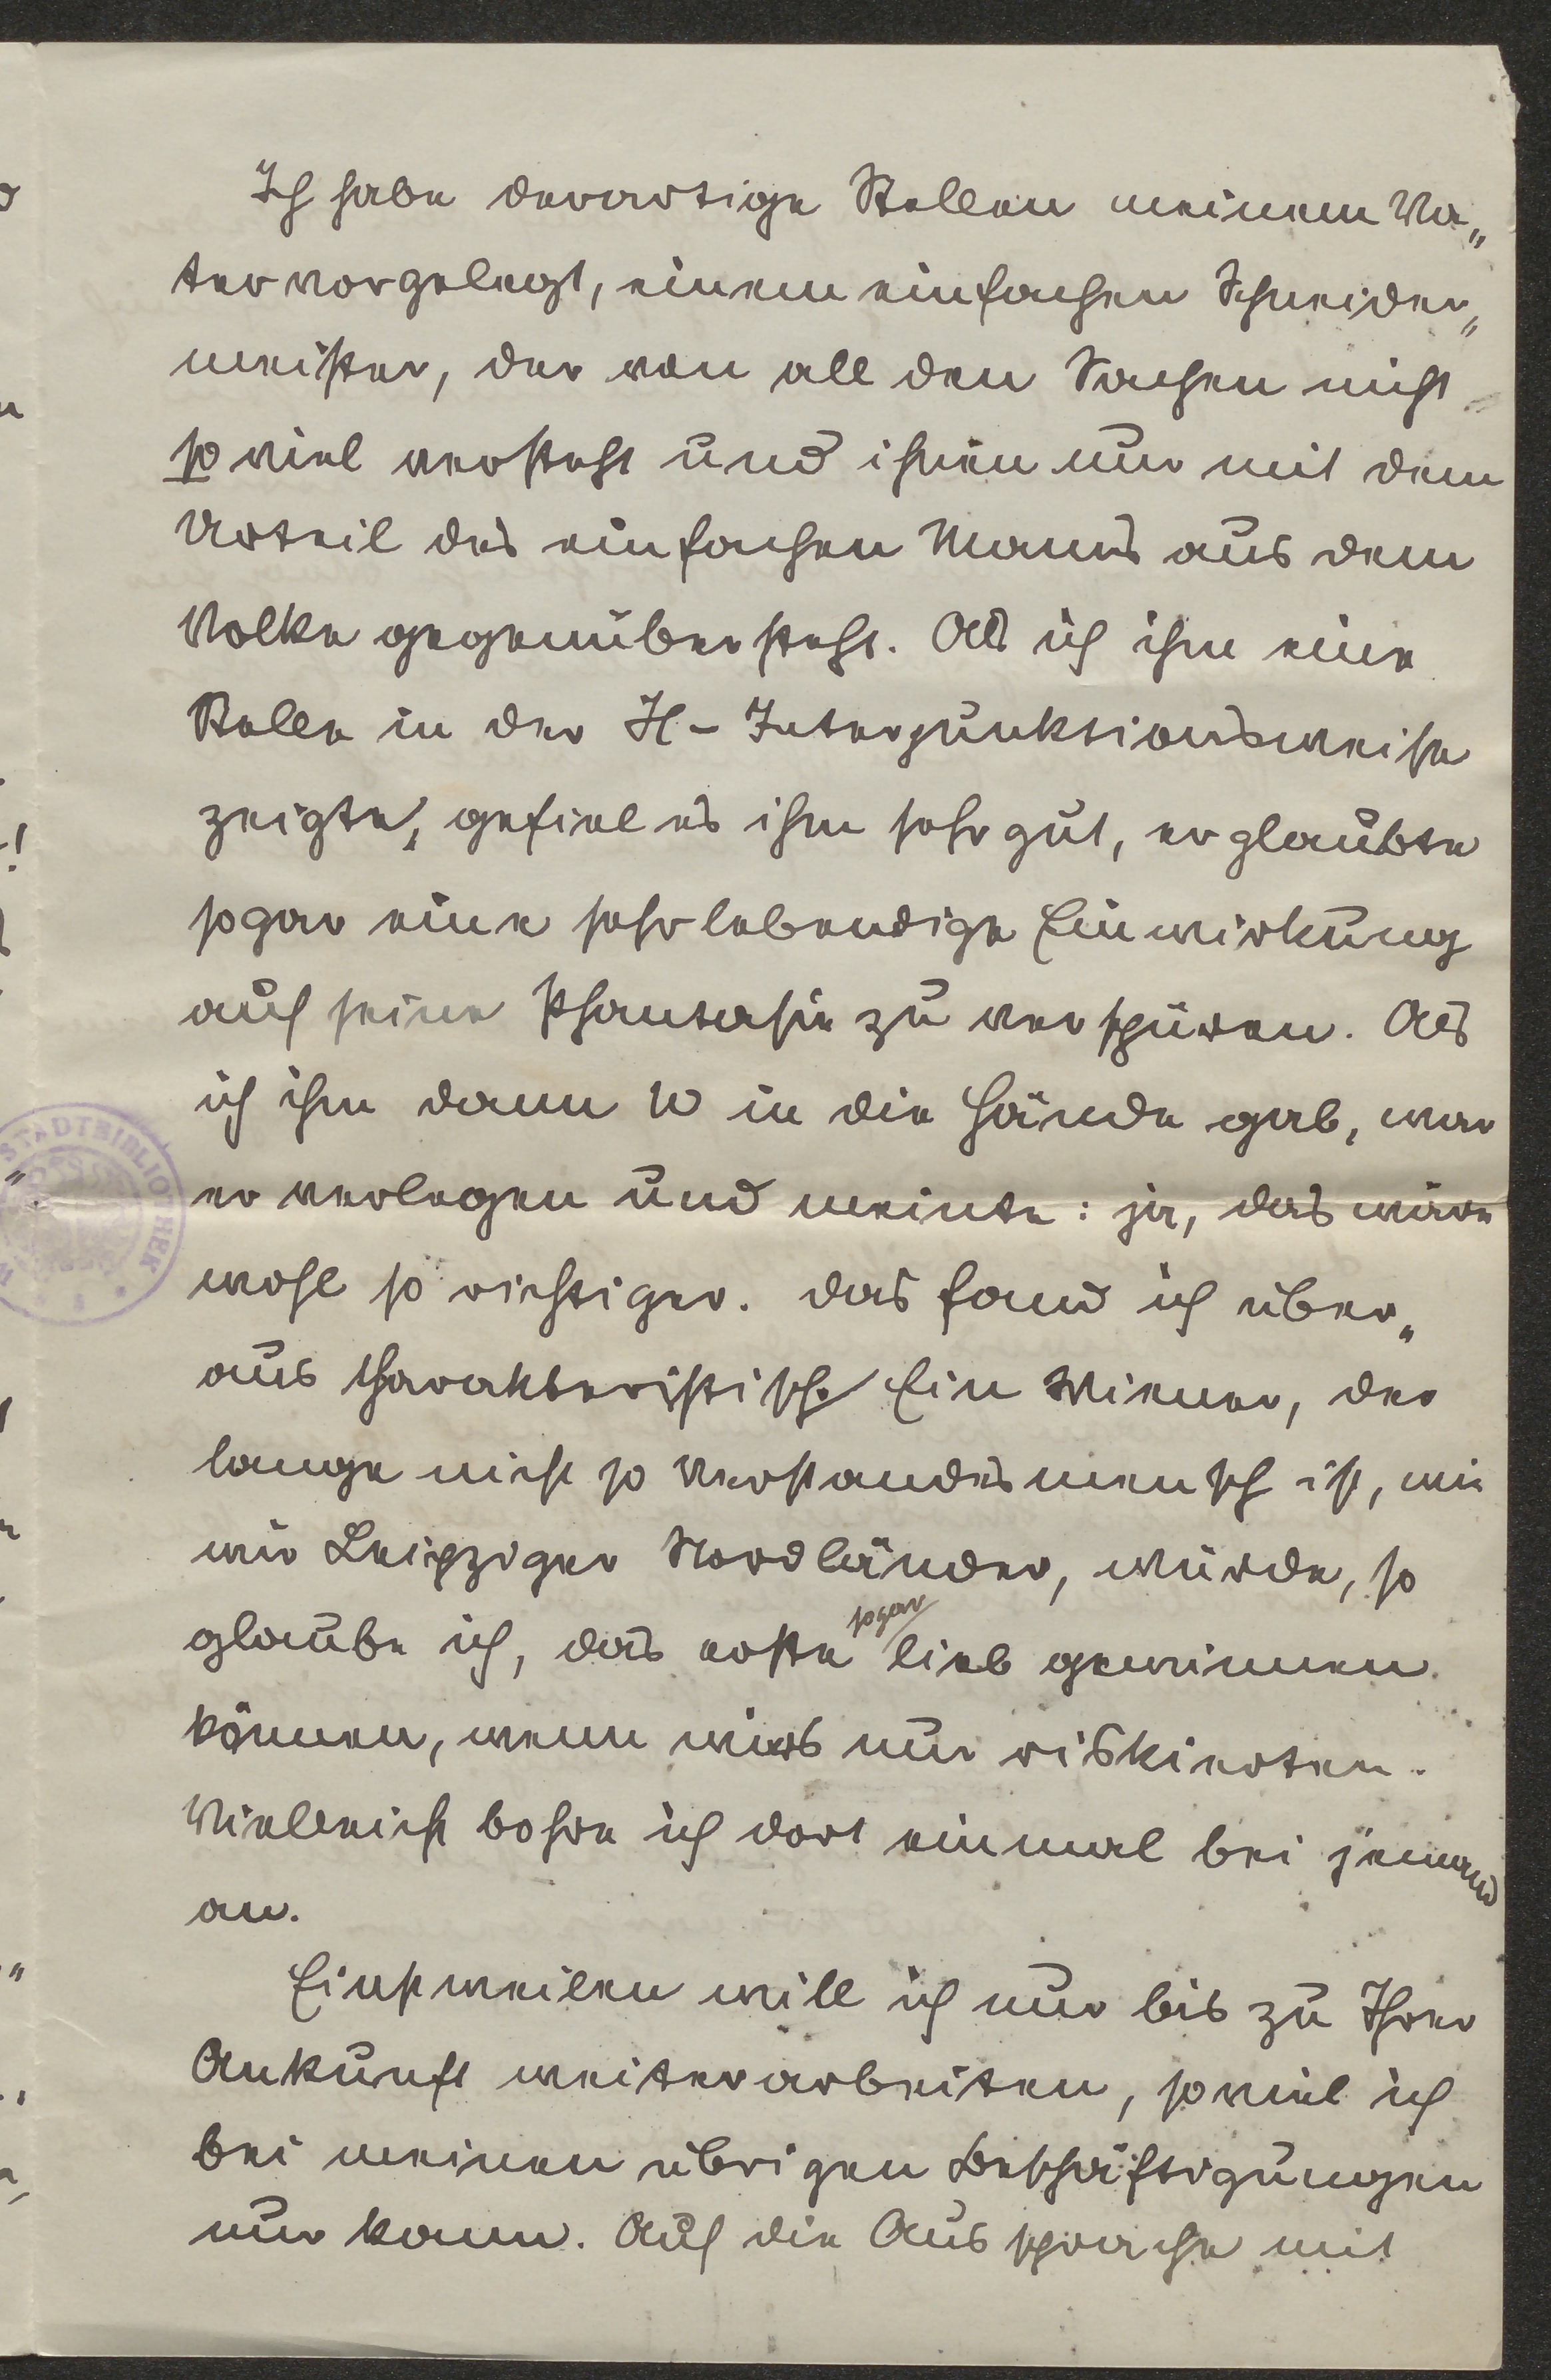 Ich habe derartige Stellen meinem Va„
ter vorgelegt, einem einfachen Schneider„
meister, der von all den Sachen nicht
so viel versteht und ihnen nur mit dem
Urteil des einfachen Manns aus dem
Volke gegenübersteht. Als ich ihm eine
Stelle in der H-Interpunktionsweise
zeigte, gefiel es ihm sehr gut, er glaubte
sogar eine sehr lebendige Einwirkung
auf seine Phantasie zu verspüren. Als
ich ihm dann W in die Hände gab, war
er verlegen und meinte: ja, das wäre
wohl so richtiger. Das fand ich über„
aus charakteristisch. Ein Wiener, der
lange nicht so Verstandesmensch ist, wie
wir Leipziger Nordländer, würde, so
glaube ich, das erste sogar lieb gewinnen
können, wenn wirs nur riskierten.
Vielleicht bohre ich dort einmal bei jemand
an.
Einstweilen will ich nur bis zu Ihrer
Ankunft weiterarbeiten, soviel ich
bei meinen übrigen Beschäftigungen
nur kann. Auf die Aussprache mit
STADTBIBLIOTHEK